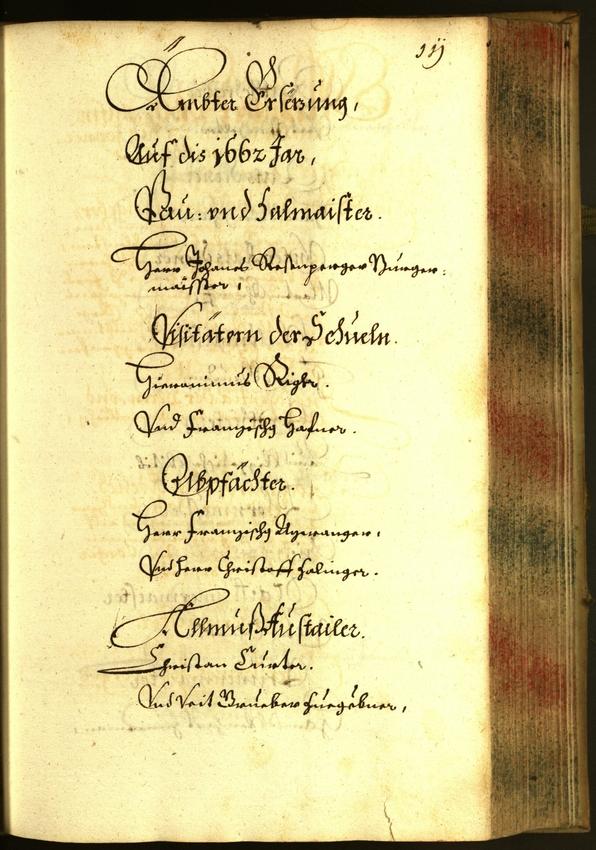 Ämbter Ersezung,
Auf dis 1662 Jar,
Pau: und Salmaister.
Herr Johanes Rosenperger Burger:
maisster,
Visitätern der Schueln.
Hieronimus Rigler.
Und Franzischg Hafner.
Abpfächter.
Herr Franzischg
Und Herr Christoff Salinger.
Allmueß Austailer.
Christan Curter.
Und Veit